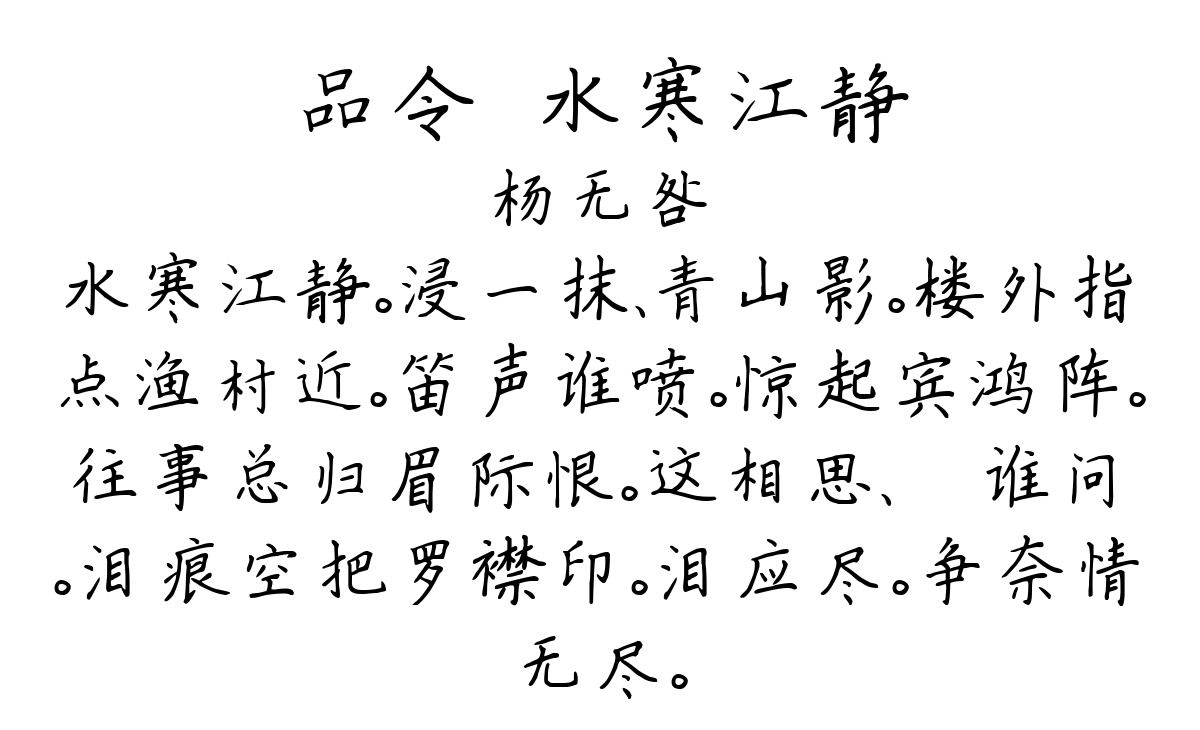 品令 水寒江静
杨无咎
水寒江静。浸一抹、青山影。楼外指
点渔村近。笛声谁喷。惊起宾鸿阵。
往事总归眉际恨。这相思、 谁问
。泪痕空把罗襟印。泪应尽。争奈情
无尽。